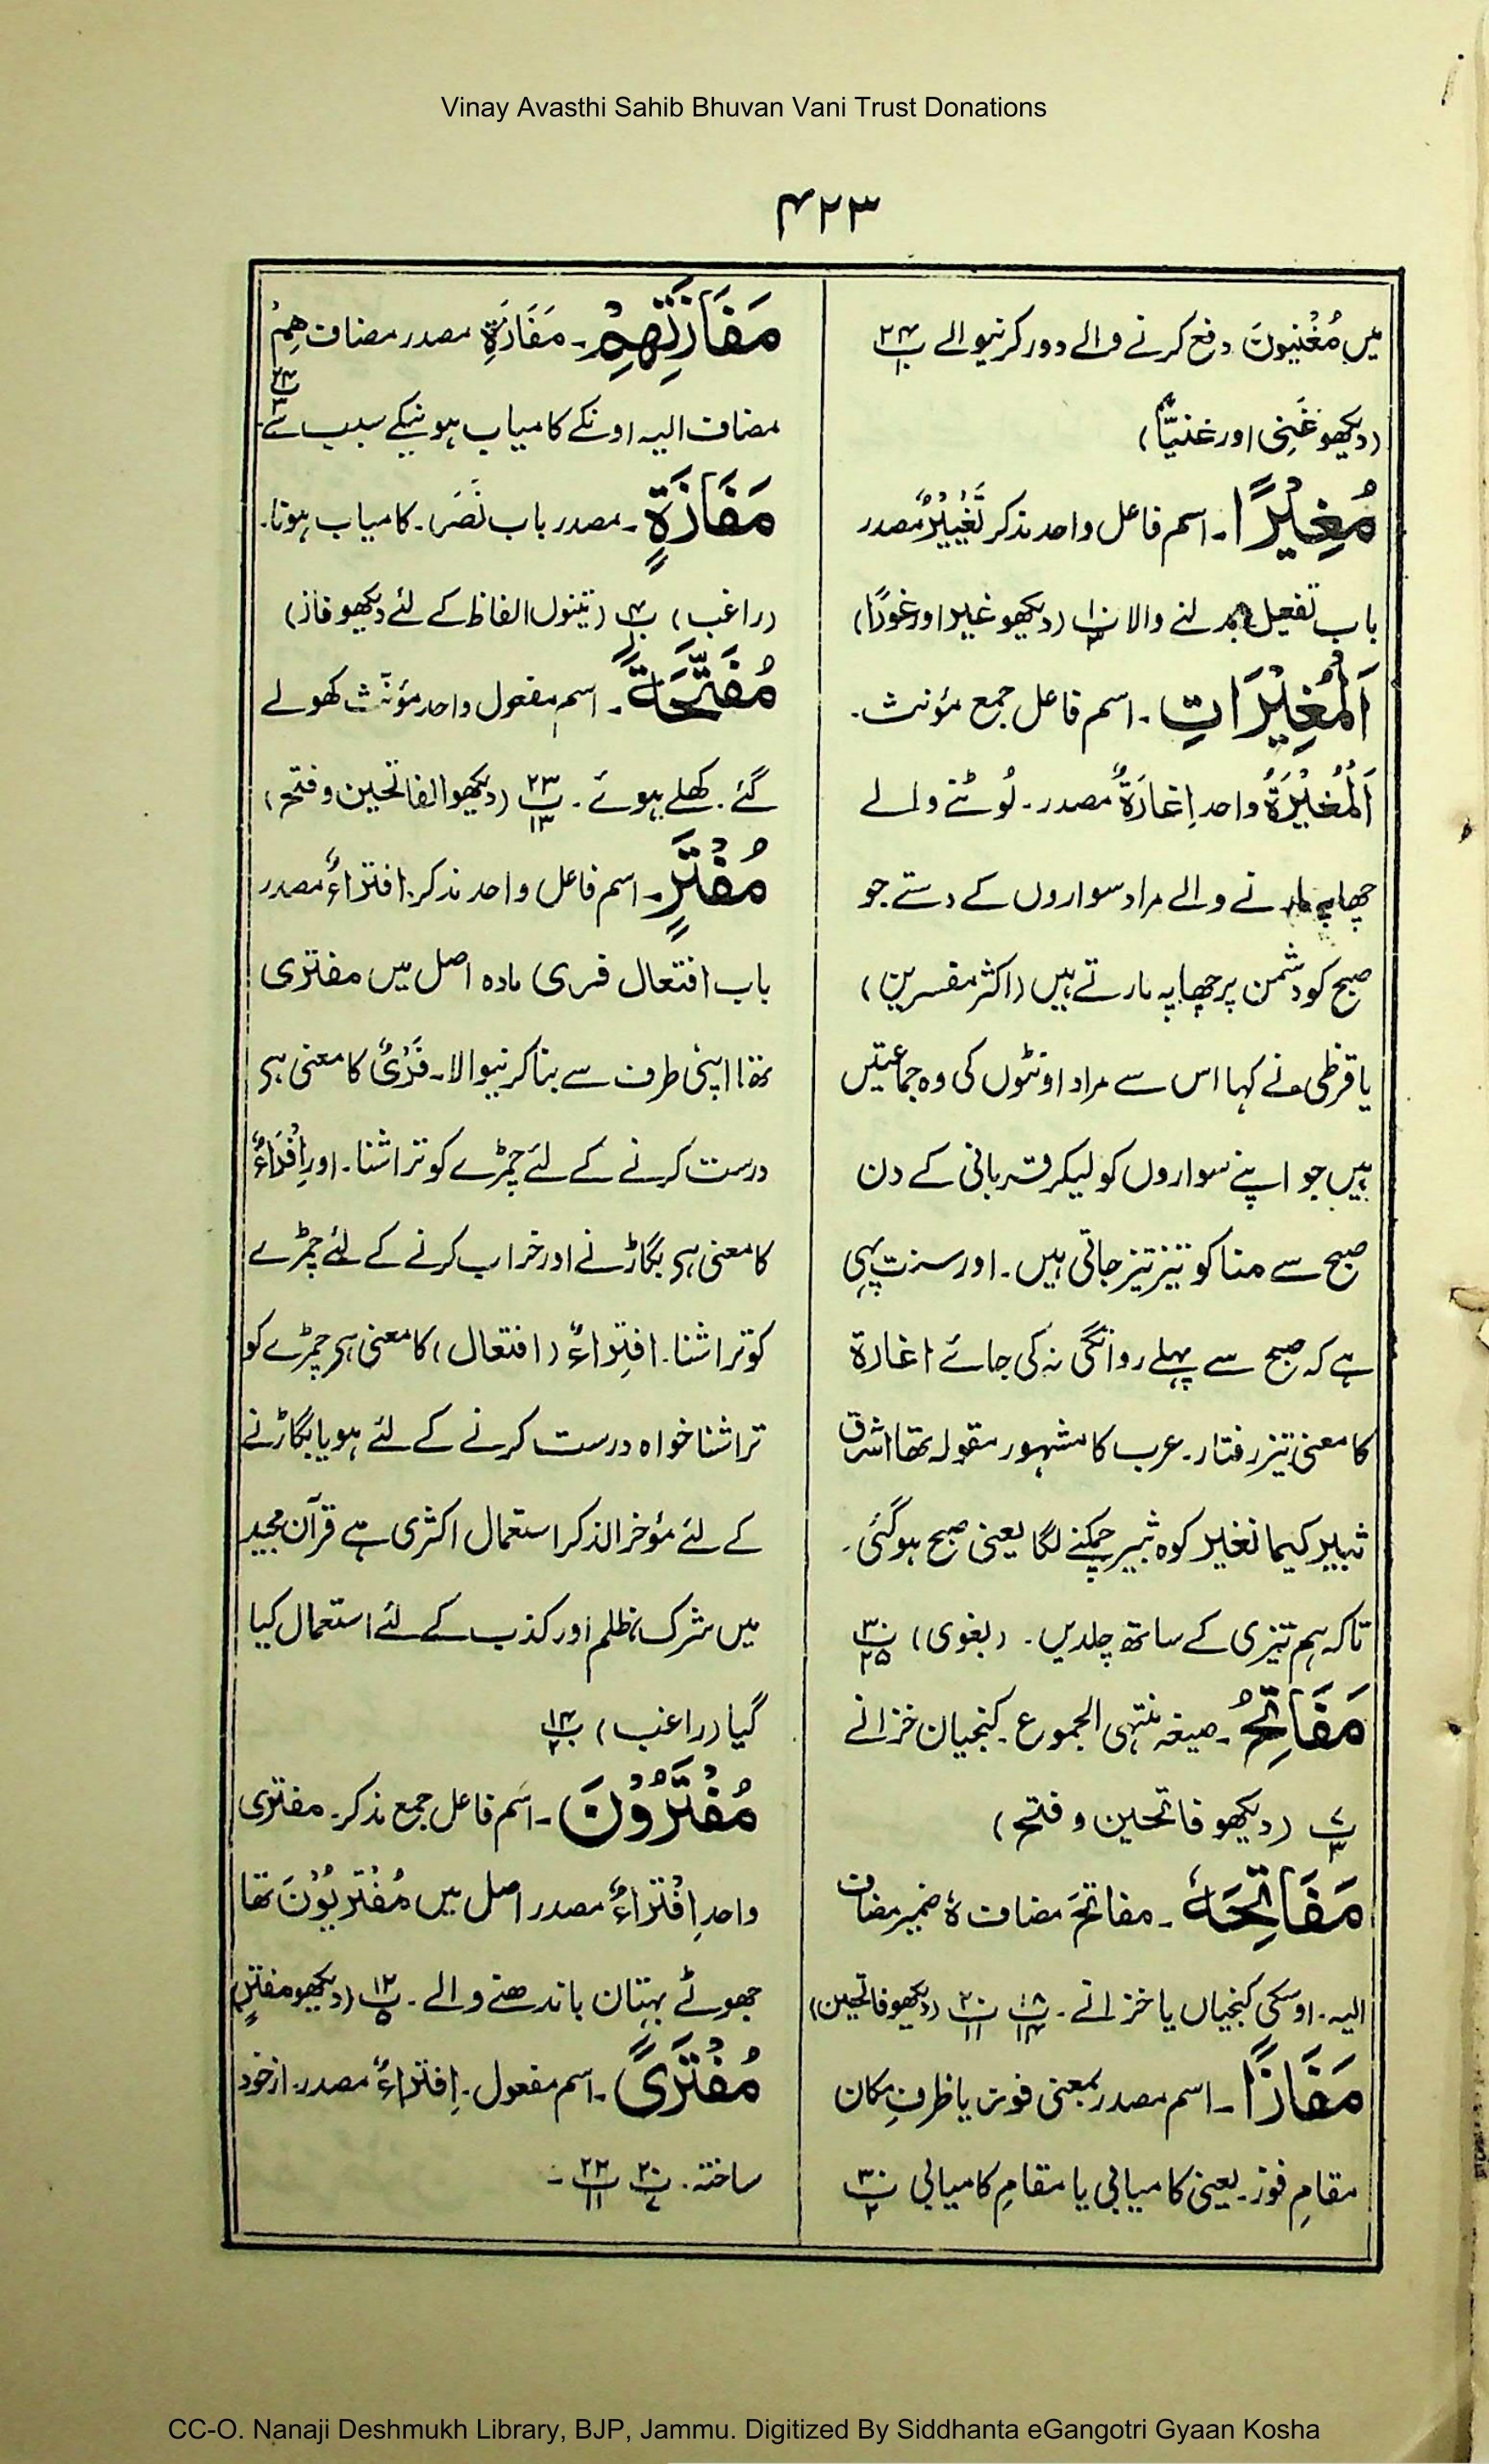 Vinay Avasthi Sahib Bhuvan Vani Trust Donations
۴۲۳
میں مُغْنِیُونَ دفع کرنے والے دور کرنیوالے ۲۴پ۱۰
(دیکھو غَنِی اور غنیًّا)
مُغِیْرًا۔ اسم فاعل واحد مذکر تَغْیِیْرٌ مصدر
باب تفعیل بدلنے والا (دیکھو غیر اور غورًا)
اَلْمُغِیْرَاتِ۔ اسم فاعل جمع مؤنث۔
اَلْمُغِیْرَۃُ واحد اِغَارَۃٌ مصدر۔ لُوٹنے والے
چھاپہ مارنے والے مراد سواروں کے دستے جو
صبح کو دشمن پر چھاپہ مارتے ہیں (اکثر مفسرین)
یا قرظی نے کہا اس سے مراد اونٹوں کی وہ جماعتیں
ہیں جو اپنے سواروں کو لیکر قربانی کے دن
صبح سے منا کو تیز تیز جاتی ہیں۔ اور سنت یہی
ہے کہ صبح سے پہلے روانگی نہ کی جائے اغارۃ
کا معنی تیز رفتار۔ عرب کا مشہور مقولہ تھا اشرق
ثبیر کیما نغیر کوہ ثبیر چمکنے لگا یعنی صبح ہوگئی۔
تاکہ ہم تیزی کے ساتھ چلدیں۔ (بغوی) ۳۰پ۲۵
مَفَاتِحُ۔ صیغہ منتہی الجموع۔ کنجیان خزانے
۷پ۱۳ (دیکھو فاتحین و فتح)
مَفَاتِحَہٗ۔ مفاتحَ مضاف ہٗ ضمیر مضاف
الیہ۔ اوسکی کنجیاں یا خزانے۔ ۱۸پ۱۴ ۲۰پ۱۱ (دیکھو فاتحین)
مَفَازًا۔ اسم مصدر بمعنی فوز یا ظرفِ مکان
مقامِ فوز۔ یعنی کامیابی یا مقامِ کامیابی ۳۰پ۲
مَفَازَتِھِمْ۔ مَفَازَۃِ مصدر مضاف ھِمْ
مضاف الیہ اونکے کامیاب ہونیکے سبب سے ۲۴پ۳
مَفَازَۃٍ۔ مصدر باب نَصَرَ۔ کامیاب ہونا۔
(راغب) ۴پ۱۰ (تینوں الفاظ کے لئے دیکھو فاز)
مُفَتَّحَۃً۔ اسم مفعول واحد مؤنث کھولے
گئے۔ کھلے ہوئے۔ ۲۳پ۱۳ (دیکھو الفاتحین و فتح)
مُفْتَرٍ۔ اسم فاعل واحد مذکر۔ افتراءٌ مصدر
باب افتعال فری مادہ اصل میں مفتری
تھا اپنی طرف سے بنا کرنیوالا۔ فَرْیٌ کا معنی ہی
درست کرنے کے لئے چمڑے کو تراشنا۔ اور اِفْرَاءٌ
کا معنی ہی بگاڑنے اور خراب کرنے کے لئے چمڑے
کو تراشنا۔ افتِراءٌ (افتعال) کا معنی ہی چمڑے کو
تراشنا خواہ درست کرنے کے لئے ہو یا بگاڑنے
کے لئے مؤخر الذکر استعمال اکثری ہے قرآن مجید
میں شرک، ظلم اور کذب کے لئے استعمال کیا
گیا (راغب) ۱۴پ۲۰
مُفْتَرُوْنَ۔ اسم فاعل جمع مذکر۔ مفتری
واحد اِفْتَرَاءٌ مصدر اصل میں مُفْتَرِیُوْنَ تھا
جھوٹے بہتان باندھنے والے۔ ۱۲پ۵ (دیکھو مفترٍ)
مُفْتَرًی۔ اسم مفعول۔ اِفتراءٌ مصدر۔ از خود
ساختہ۔ ۲۰پ۷ ۲۲پ۱۱۔
CC-O. Nanaji Deshmukh Library, BJP, Jammu. Digitized By Siddhanta eGangotri Gyaan Kosha